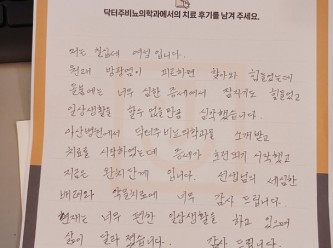 닥터주비뇨의학과에서의 치료 후기를 남겨 주세요.
저는 일십세 여성 입니다.
원래 방광염이 피곤하면 찾아와 힘들었는데
올봄에는 너무 심한 증세에서 잠자기도 힘들었고
일상생활을 할수 없을만큼 심각했습니다.
아산병원에서 닥터주비뇨의학과를 소개받고
치료를 시작하였는데 증세가 호전되기 시작했고
지금은 완치단계 입니다. 선생님의 세심한
배려와 약물치료에 너무 감사 드립니다.
현재는 너무 편한 일상생활을 하고 있으며
삶이 달라 졌습니다. 감사 드립니다.